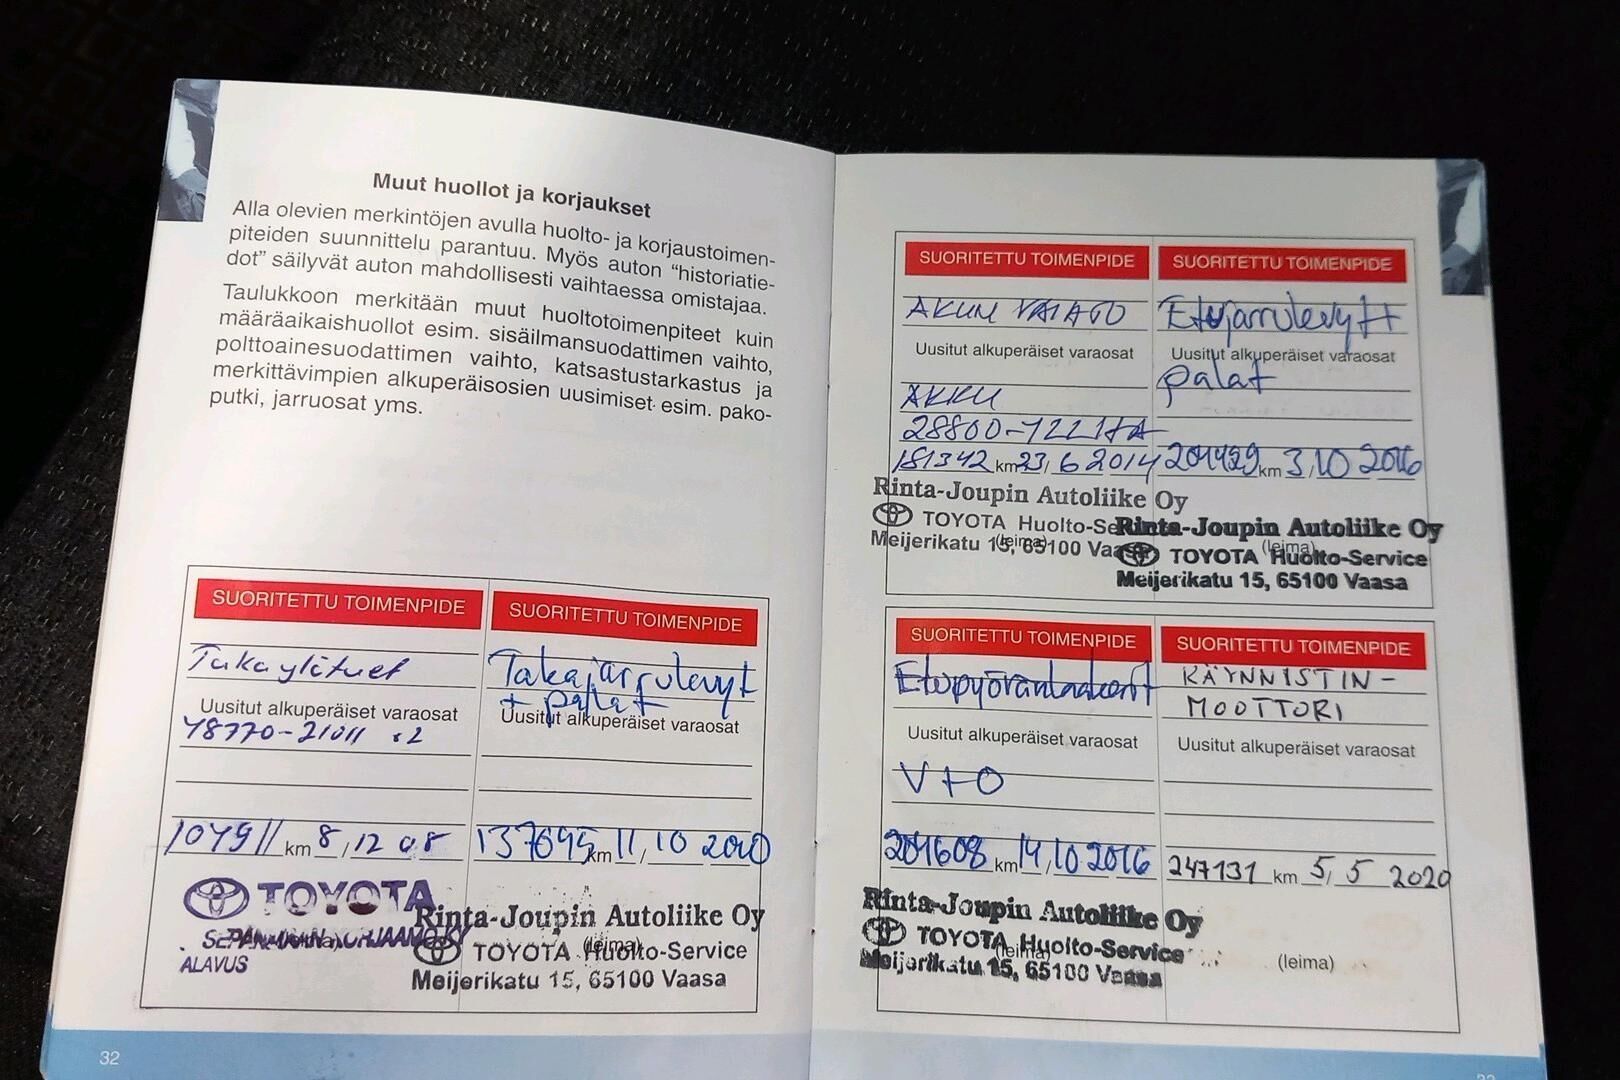 Muut huollot ja korjaukset
Alla olevien merkintöjen avulla huolto- ja korjaustoimen-
piteiden suunnittelu parantuu. Myös auton "historiatie-
dot" säilyvät auton mahdollisesti vaihtaessa omistajaa.
Taulukkoon merkitään muut huoltotoimenpiteet kuin
määräaikaishuollot esim. sisäilmansuodattimen vaihto,
polttoainesuodattimen vaihto, katsastustarkastus ja
merkittävimpien alkuperäisosien uusimiset esim. pako-
putki, jarruosat yms.
SUORITETTU TOIMENPIDE
Takaylätuet
Uusitut alkuperäiset varaosat
48770-21011 x2
107911 km 8/12 08
TOYOTA
ALAVUS
SUORITETTU TOIMENPIDE
Takajarrulevyt
+ palat
Uusitut alkuperäiset varaosat
137695 km 11/10 2010
Rinta-Joupin Autoliike Oy
TOYOTA Huolto-Service
(leima)
Meijerikatu 15, 65100 Vaasa
32
SUORITETTU TOIMENPIDE
AKUN VAIHTO
Uusitut alkuperäiset varaosat
AKKU
181342 km 23/6 2014
Rinta-Joupin Autoliike Oy
TOYOTA Huolto-Se
(leima)
Meijerikatu 15, 65100 Vaasa
SUORITETTU TOIMENPIDE
Etujarrulevyt +
Uusitut alkuperäiset varaosat
palat
201429 km 3/10 2016
Rinta-Joupin Autoliike Oy
(leima)
TOYOTA Huolto-Service
Meijerikatu 15, 65100 Vaasa
SUORITETTU TOIMENPIDE
Etupyöränlaakerit
Uusitut alkuperäiset varaosat
V+O
201608 km 14/10 2016
Rinta-Joupin Autoliike Oy
TOYOTA Huolto-Service
(leima)
Meijerikatu 15, 65100 Vaasa
SUORITETTU TOIMENPIDE
KÄYNNISTIN-
MOOTTORI
Uusitut alkuperäiset varaosat
247131 km 5/5 2020
(leima)